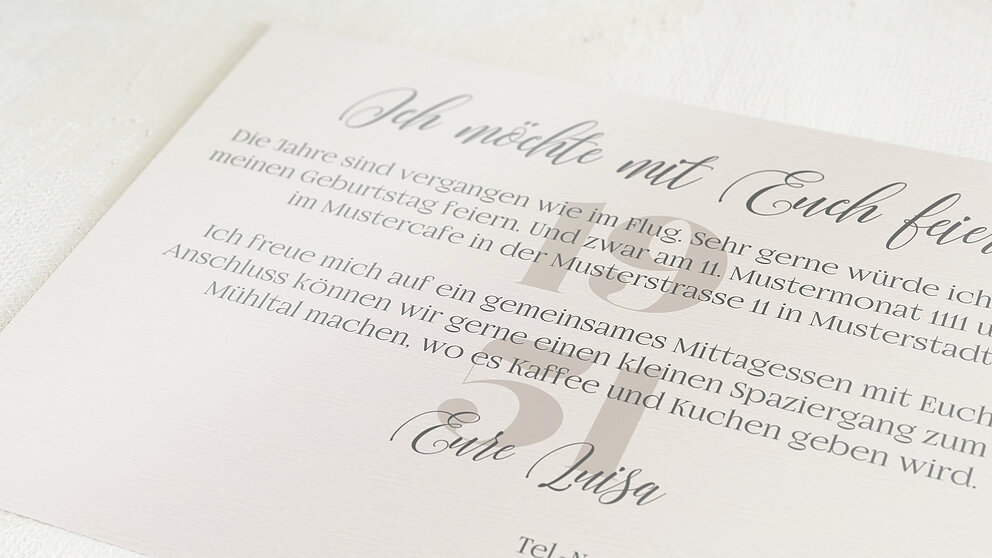 Ich möchte mit Euch feier
Die Jahre sind vergangen wie im Flug. Sehr gerne würde ich
meinen Geburtstag feiern. Und zwar am 11. Mustermonat 1111 u
im Mustercafe in der Musterstrasse 11 in Musterstadt
Ich freue mich auf ein gemeinsames Mittagessen mit Euch
Anschluss können wir gerne einen kleinen Spaziergang zum
Mühltal machen, wo es Kaffee und Kuchen geben wird.
19
51
Eure Luisa
Tel.-N